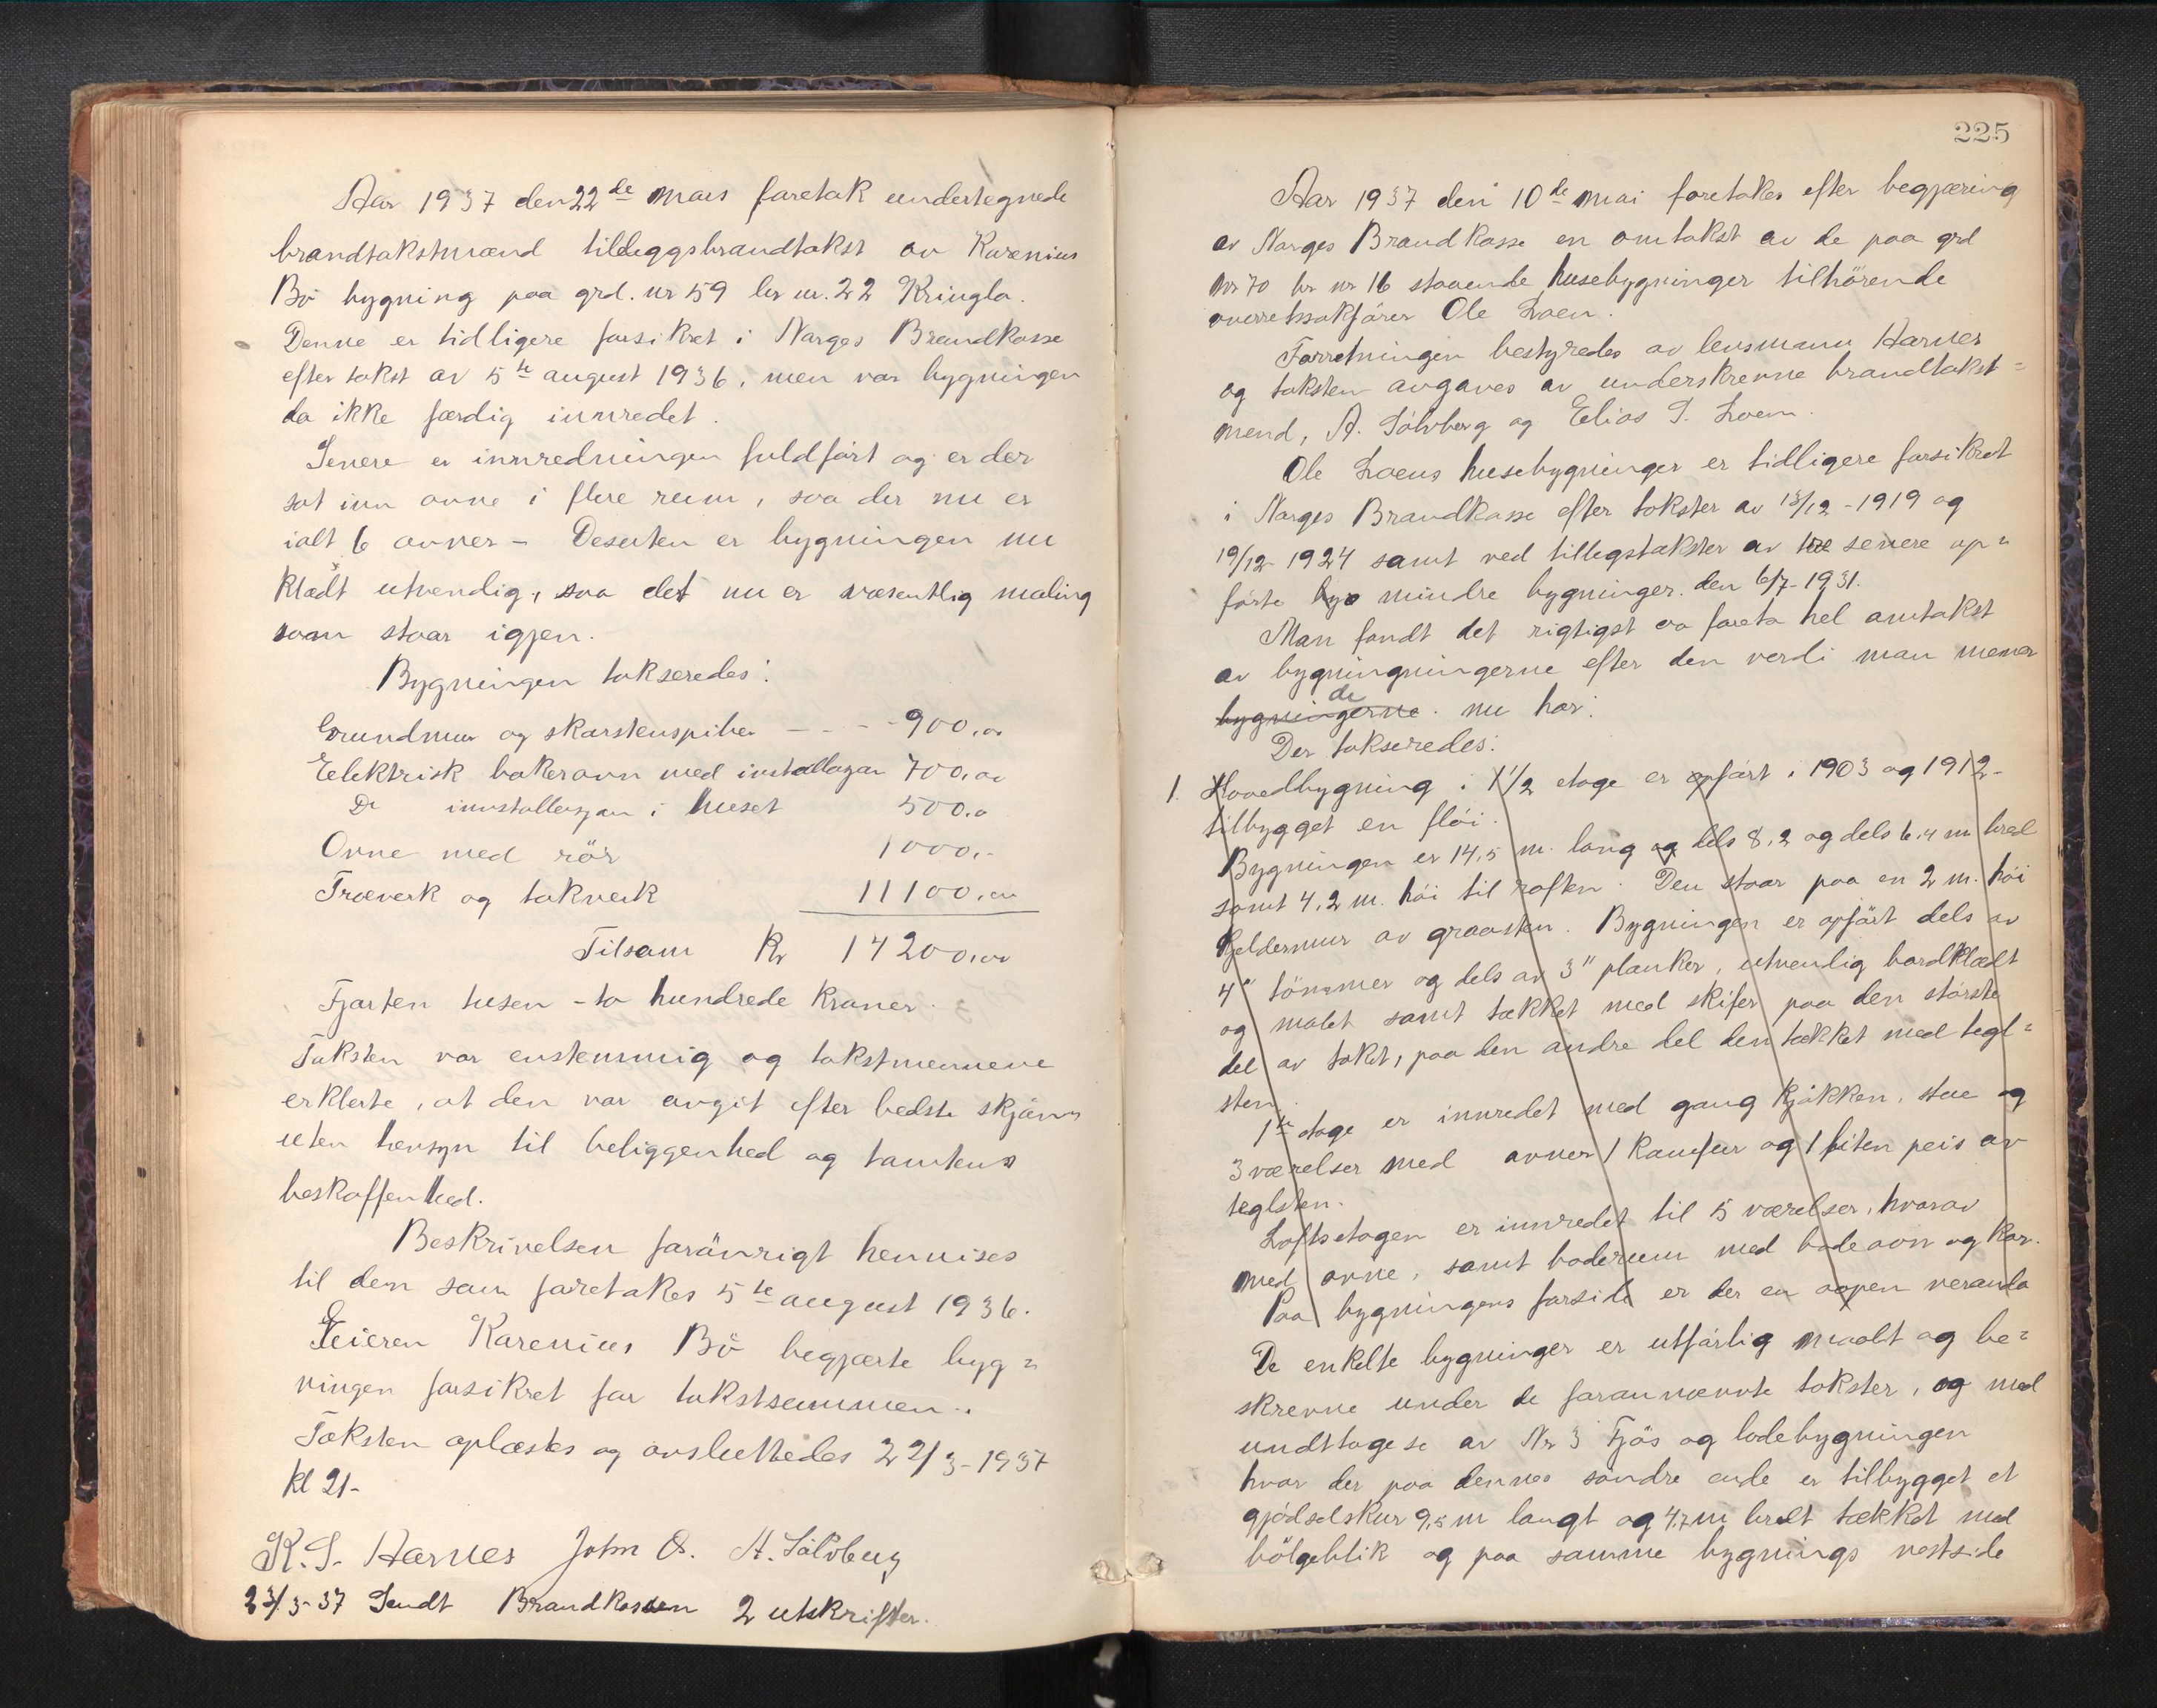 Aar 1937 den 22de mars foretok undertegnede
brandtakstmænd tilleggsbrandtakst av Karenius
Bö bygning paa grd. nr 59 br nr. 22 Kringla.
Denne er tidligere forsikret i Norges Brandkasse
efter takst av 5te august 1936, men var bygningen
da ikke færdig innredet.
Senere er innredningen fuldfört og er der
sat inn ovne i flere rum, saa der nu er
ialt 6 ovner - Desuten er bygningen nu
klædt utvendig, saa det nu er væsentlig maling
som staar igjen.
Bygningen takseredes:
Grundmur og skorstenspiber - - - 900,00
Elektrisk bakerovn med installasjon 700,00
Do innstallasjon i huset 500,0
Ovne med rör 1000,-
Træverk og takverk 11100,00
Tilsam Kr 14200,00
Fjorten tusen - to hundrede Kroner.
Taksten var enstemmig og takstmennene
erklerte, at den var avgit efter bedste skjönn
uten hensyn til beliggenhed og tomtens
beskaffenhed.
Beskrivelsen forövrigt henvises
til den som foretokes 5te august 1936.
Eieren Karenius Bö begjærte byg=
ningen forsikret for takstsummen.
Taksten oplæstes og avsluttedes 22/3-1937
kl 21-
K. S. Harnes John O. A. Sölvberg
23/3-37 Sendt Brandkassen 2 utskrifter.
225
Aar 1937 den 10de mai foretokes efter begjæring
av Norges Brandkasse en omtakst av de paa grd
nr 70 br nr 16 staaende husebygninger tilhörende
overretssakförer Ole Loen.
Forretningen bestyredes av lensmann Harnes
og taksten avgaves av underskrevne brandtakst=
mend, A. Sölvberg og Elias S. Loen.
Ole Loens husebygninger er tidligere forsikret
i Norges Brandkasse efter takster av 13/12-1919 og
19/12-1924 samt ved tillegstakster av senere op=
förte mindre bygninger. den 6/7-1931.
Man fandt det rigtigst aa foreta hel omtakst
av bygningningerne efter den verdi man mener
de
bygningerne. nu har.
Der takseredes:
1. Hovedbygning i 1 1/2 etage er opfört i 1903 og 1912-
tilbygget en flöi.
Bygningen er 14,5 m. lang og dels 8,2 og dels 6,4 m bred
samt 4,2 m. höi til raften. Den staar paa en 2 m. höi
kjeldermur av graasten. Bygningen er opfört dels av
4" tömmer og dels av 3" planker, utvendig bordklædt
og malet samt tækket med skifer paa den största
del av taket, paa den andre del den tækket med tegl=
sten.
1ste etage er innredet med gang kjökken, stue og
3 værelser med ovner 1 komfur og 1 liten peis av
teglsten.
Loftsetagen er innredet til 5 værelser, hvorav
med ovne, samt baderum med badeovn og kar.
Paa bygningens forside er der en aapen veranda
De enkelte bygninger er utförlig maalt og be=
skrevne under de forannævnte takster, og med
undttagese av Nr 3 Fjös og lodebygningen
hvor der paa dennes söndre ende er tilbygget et
gjödselskur 9,5 m langt og 4,7 m bredt tækket med
bölgeblik og paa samme bygnings vestside